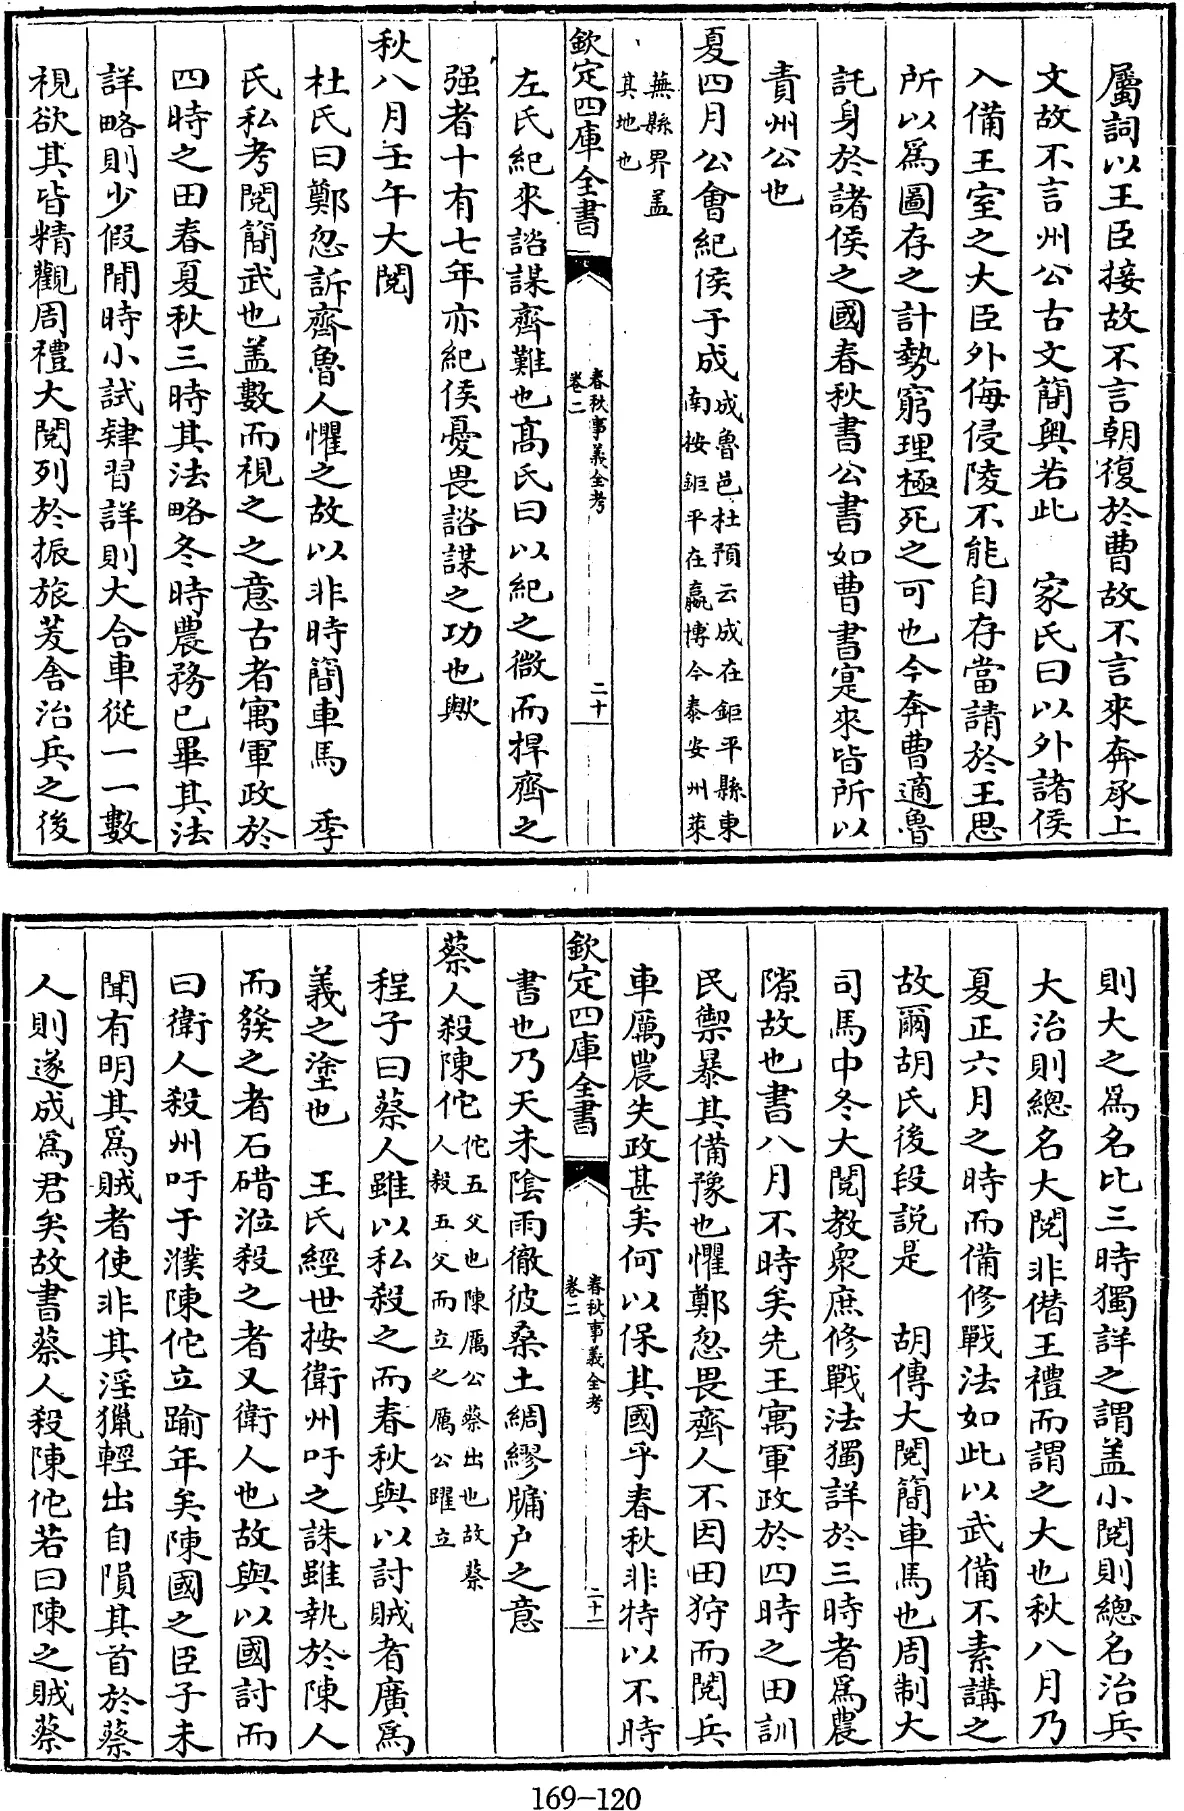 屬詞以王臣接故不言朝復於曹故不言來奔承上
文故不言州公古文簡奥若此　家氏曰以外諸侯
入備王室之大臣外侮侵陵不能自存當請於王思
所以為圖存之計勢窮理極死之可也今奔曹適魯
託身於諸侯之國春秋書公書如曹書寔來皆所以
責州公也
夏四月公會紀侯于成成魯邑杜預云成在鉅平縣東
南按鉅平在嬴博今泰安州萊
蕪縣界盖
其地也
欽定四庫全書
春秋事義全考
卷二
二十
左氏紀來諮謀齊難也髙氏曰以紀之微而捍齊之
强者十有七年亦紀侯憂畏諮謀之功也歟
秋八月壬午大閱
杜氏曰鄭忽訴齊魯人懼之故以非時簡車馬　季
氏私考閱簡武也盖數而視之之意古者寓軍政於
四時之田春夏秋三時其法略冬時農務已畢其法
詳略則少假閒時小試肄習詳則大合車徒一一數
視欲其皆精觀周禮大閱列於振旅茇舎治兵之後
則大之為名比三時獨詳之謂盖小閱則總名治兵
大治則總名大閱非僣王禮而謂之大也秋八月乃
夏正六月之時而備修戰法如此以武備不素講之
故爾胡氏後段説是　胡傳大閱簡車馬也周制大
司馬中冬大閱教衆庶修戰法獨詳於三時者為農
隙故也書八月不時矣先王寓軍政於四時之田訓
民禦暴其備豫也懼鄭忽畏齊人不因田狩而閱兵
車厲農失政甚矣何以保其國乎春秋非特以不時
欽定四庫全書
春秋事義全考
卷二
二十一
書也乃天未陰雨徹彼桑土綢繆牖户之意
蔡人殺陳佗佗五父也陳厲公蔡出也故蔡
人殺五父而立之厲公躍立
程子曰蔡人雖以私殺之而春秋與以討賊者廣為
義之塗也　王氏經世按衛州吁之誅雖執於陳人
而發之者石碏涖殺之者又衛人也故與以國討而
曰衛人殺州吁于濮陳佗立踰年矣陳國之臣子未
聞有明其為賊者使非其淫獵輕出自隕其首於蔡
人則遂成為君矣故書蔡人殺陳佗若曰陳之賊蔡
169-120